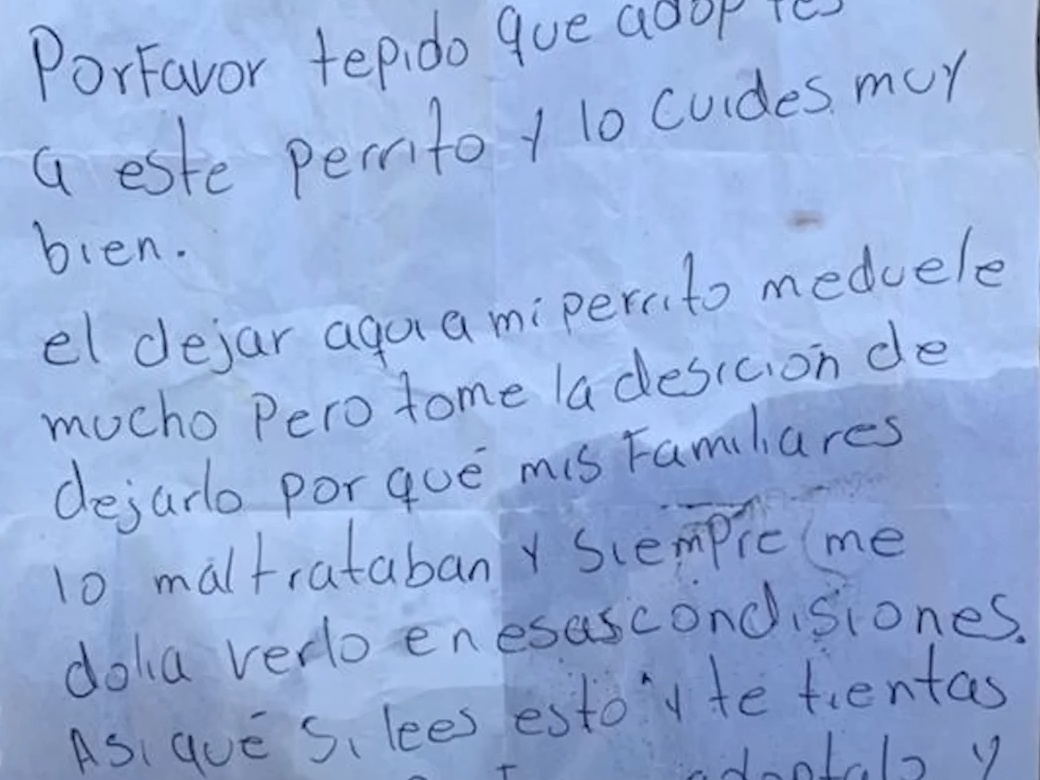 PorFavor tepido que adoptes
a este perrito y lo cuides muy
bien.
el dejar aqui a mi perrito meduele
mucho Pero tome la desición de
dejarlo por qué mis Familiares
lo maltrataban y Siempre me
dolia verlo en esas condisiones.
Asi qué Si lees esto y te tientas
adoptalo y